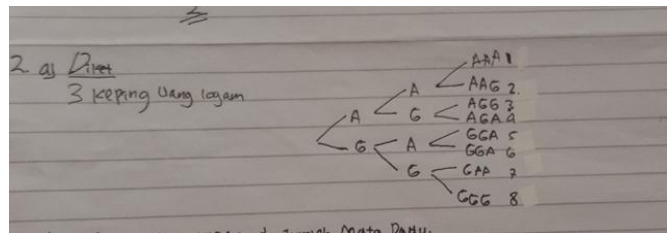 2 a) Diket
3 keping Uang logam
AAA 1
A AAG 2.
A G AGG 3
AGA 4
G A GGA 5
GGA 6
G GAA 7
GGG 8
Mata Dadu.